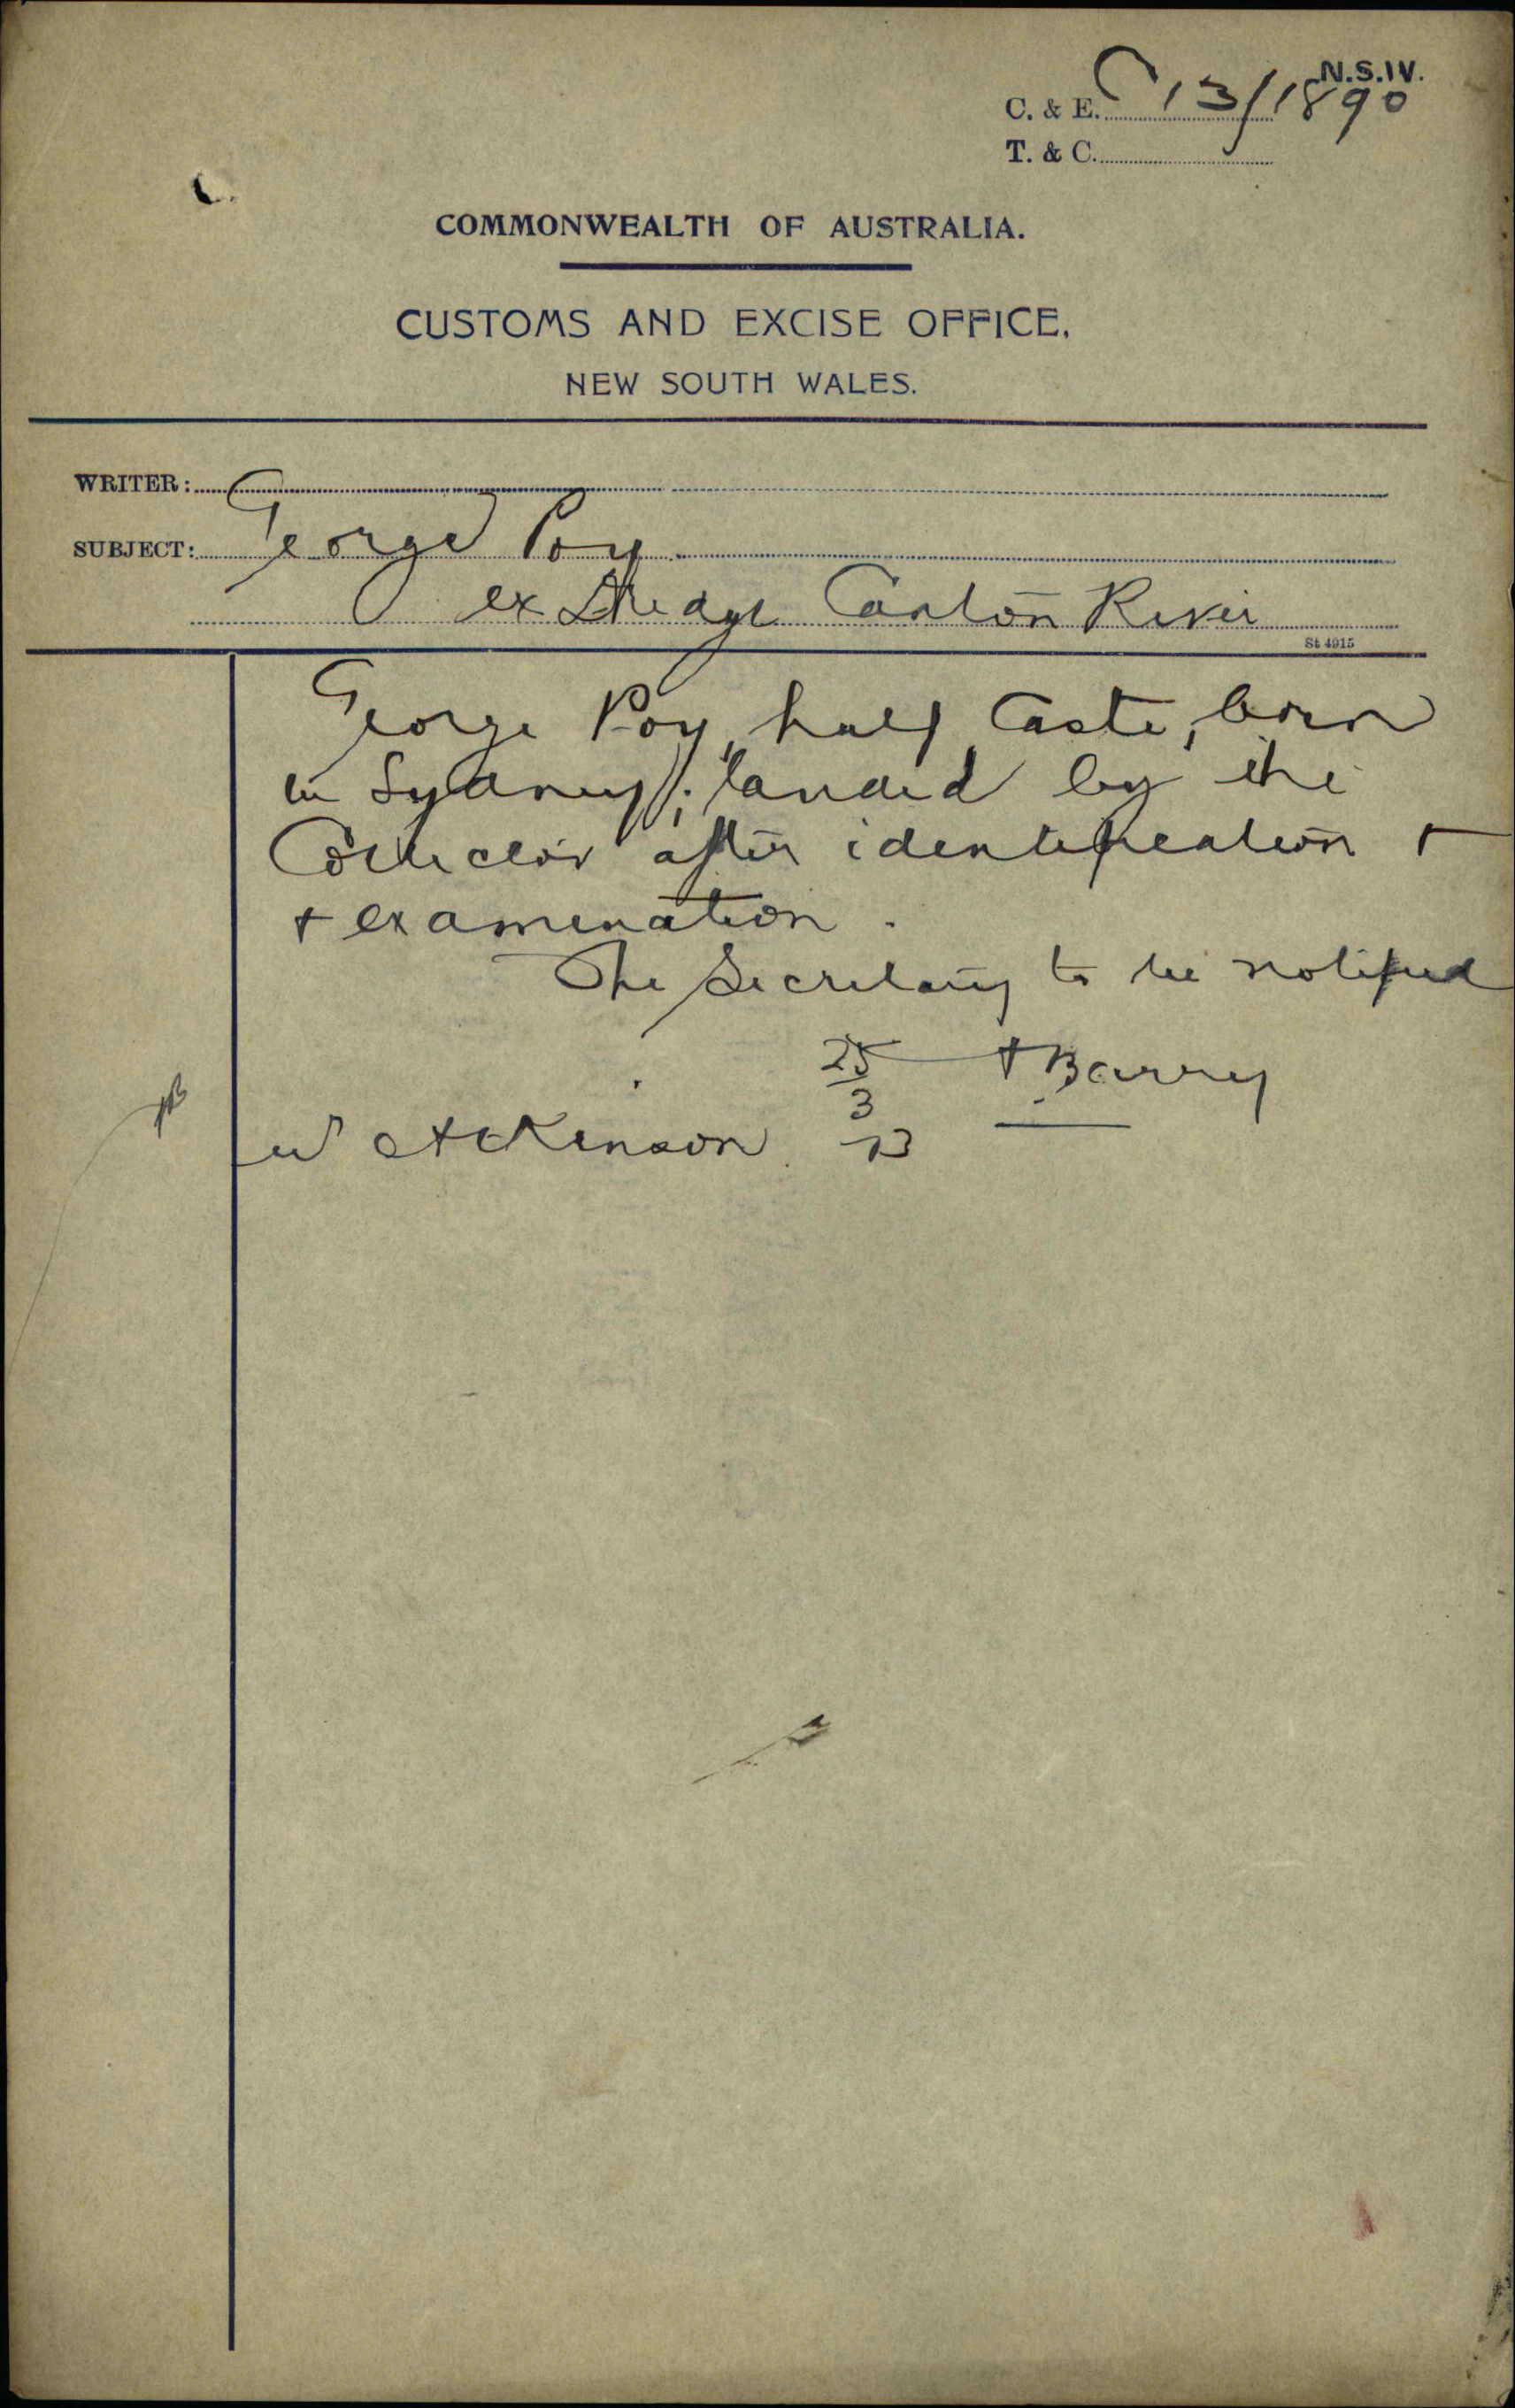 N.S.W.
C. & E. C 13/1890
T. & C.
COMMONWEALTH OF AUSTRALIA.
CUSTOMS AND EXCISE OFFICE,
NEW SOUTH WALES.
WRITER:
SUBJECT: George Poy
ex Dredge Canton River
St 4915
George Poy, half Caste, born
in Sydney; landed by the
Collector after identification +
+ examination.
The Secretary to be notified
25 Barry
3
W Atkinson 13